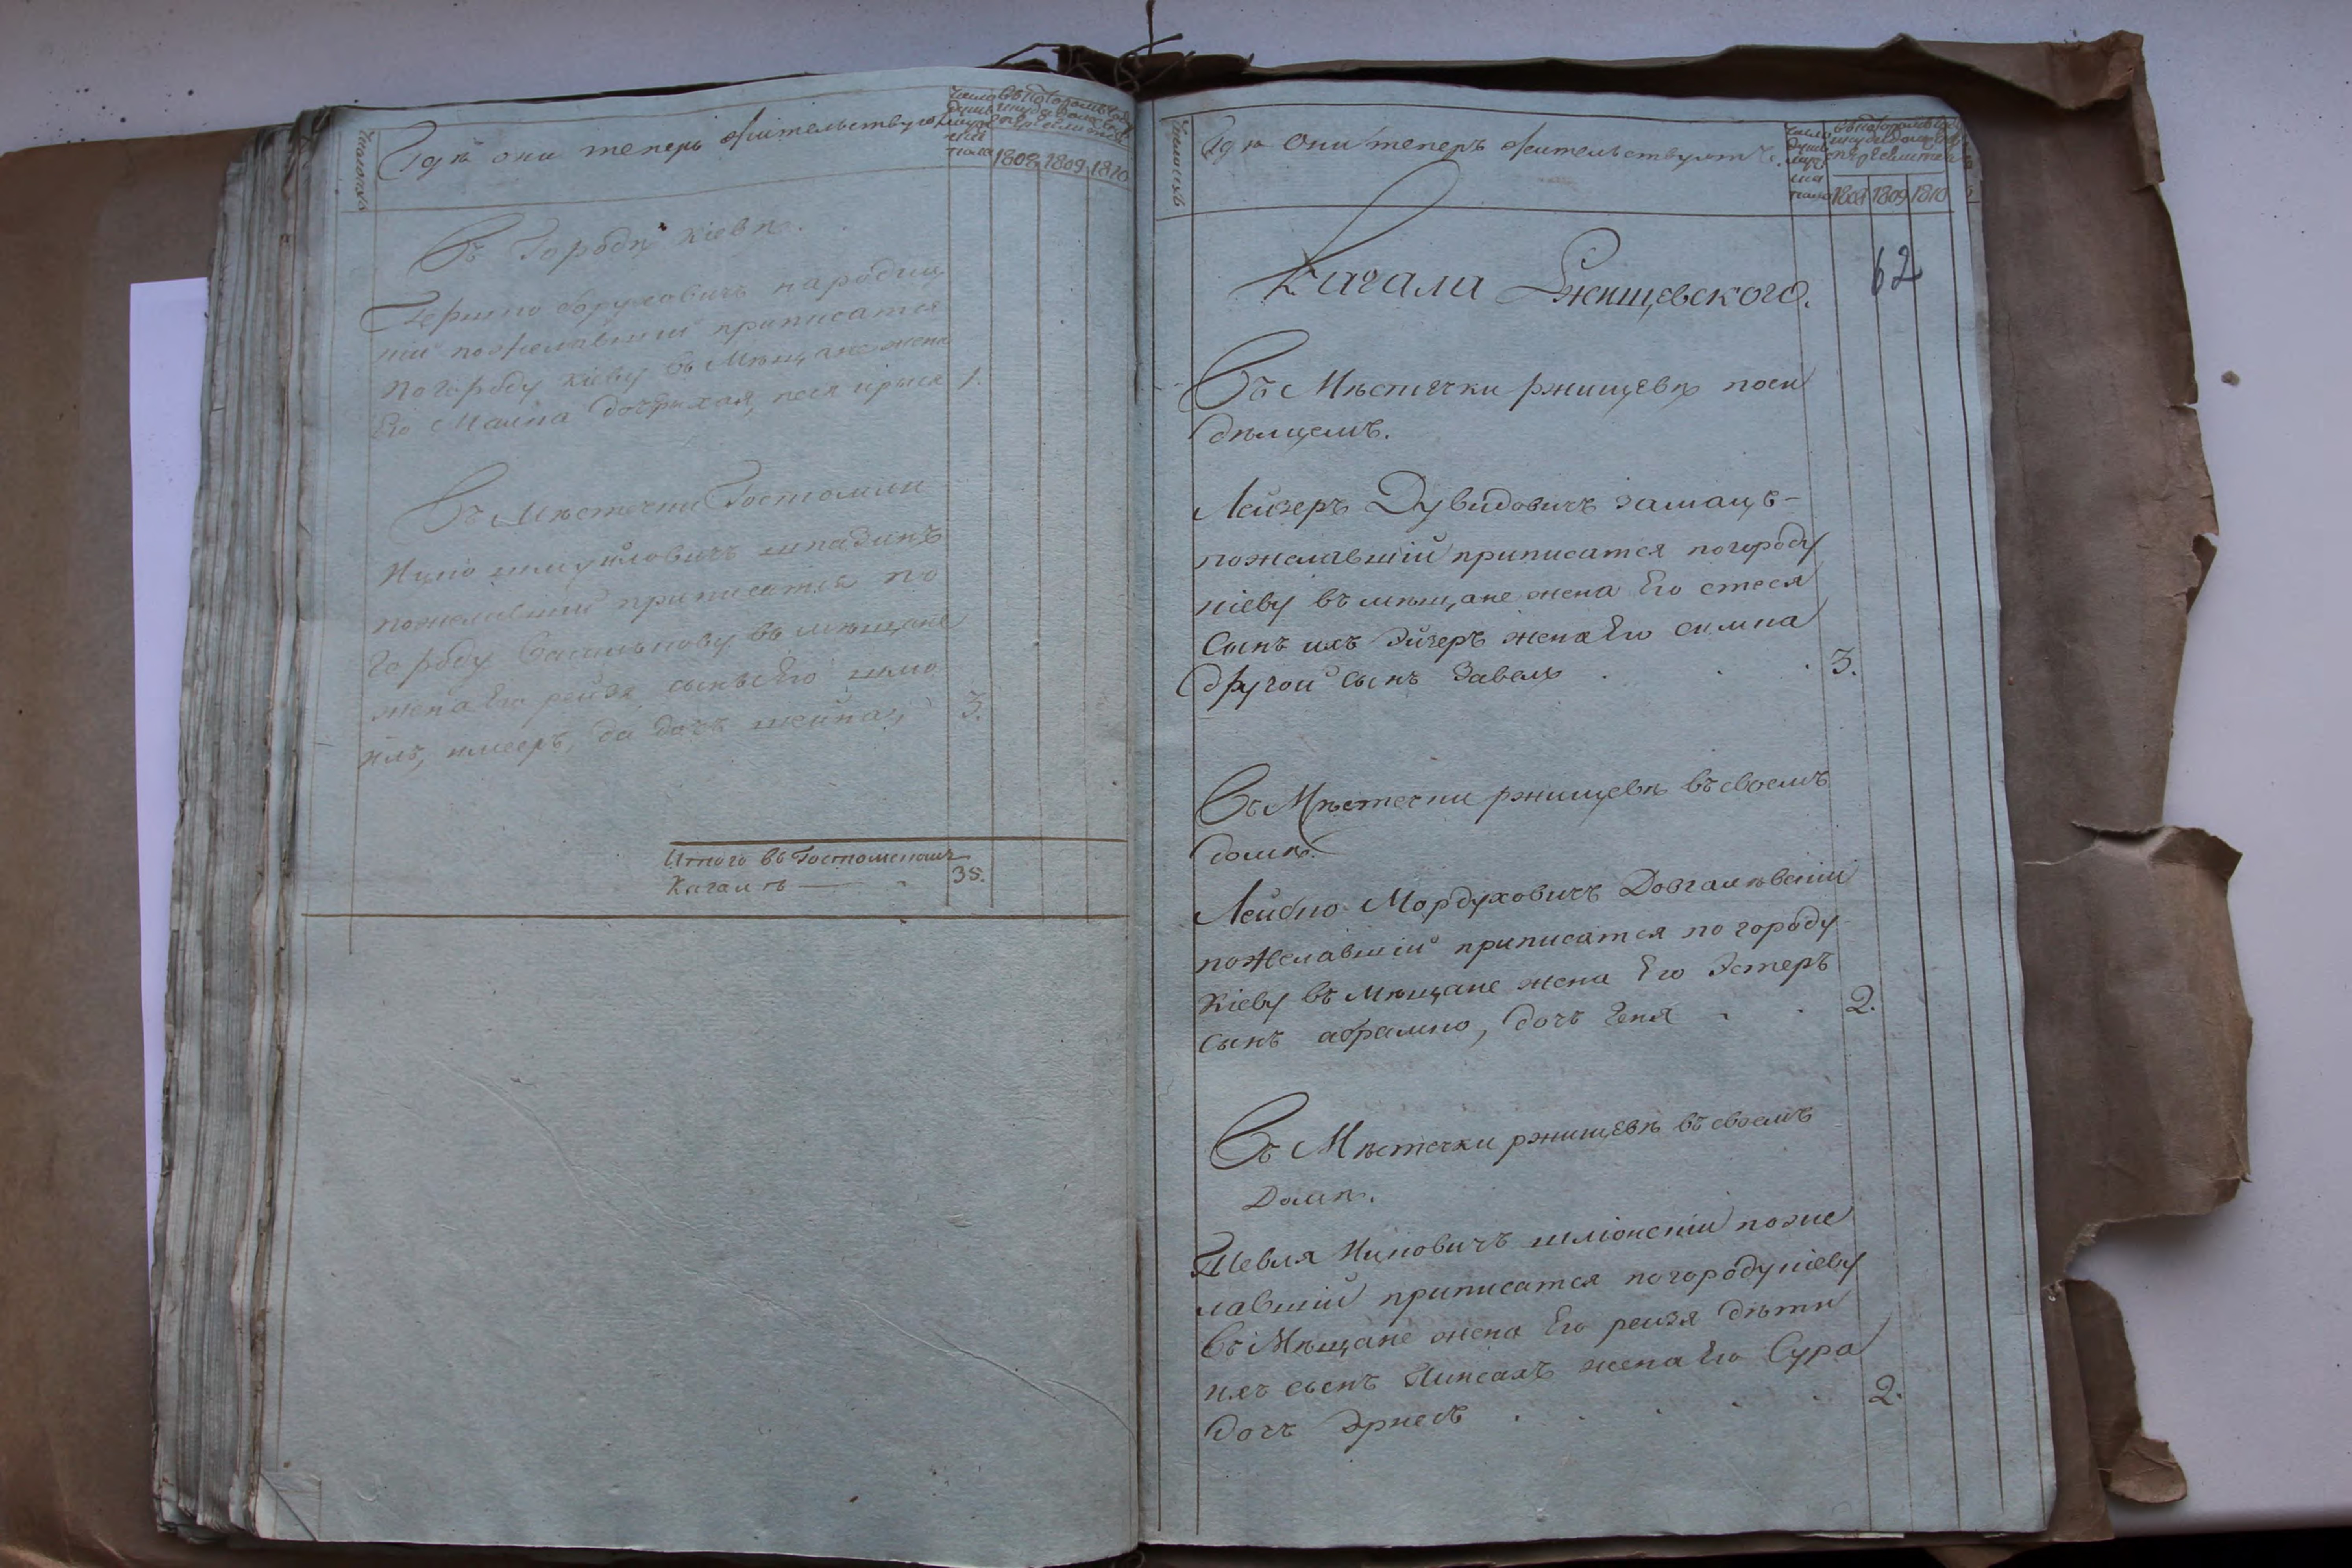 Гдѣ они теперь жительствуютъ
Число
душъ
муж
ска
пола
1808 1809 1810
Въ Городѣ Кіевѣ.
Гершко
ній пожелавший приписатся
по городу Кіеву въ Мѣщане жена
Его Малка 1.
Въ Мѣстечки Гостомли
Ицко шмуиловичъ
пожелавший приписатся по
городу Василькову въ мѣщане
жена Его рейзя сынъ Его шмо
илъ, да дочь шейна, 3.
Итого въ Гостомскомъ
Кагалѣ 35.
Гдѣ они теперъ жительствуютъ.
Число
душъ
муж
ска
пола
1808 1809 1810
62
Кагала Ржищевского.
Въ Мѣстечки ржищевѣ поси
дѣлцемъ.
Лейзеръ Дувидовичъ
пожелавшій приписатся погороду
кіеву въ мѣщане жена Его стеся
Сынъ ихъ жена Его симка
другой сынъ Завель 3.
Въ Мѣстечки ржищевѣ въ своемъ
домѣ.
Лейбко Мордуховичъ Довгалѣвскій
пожелавшій приписатся по городу
Кіеву въ Мѣщане жена Его Эстеръ
сынъ абрамко, дочъ Геня 2.
Въ Мѣстечки ржищевѣ въ своемъ
Домѣ.
Тевля Ицковичъ поже
лавшій приписатся погороду кіеву
въ Мѣщане жена Его рейзя дѣти
ихъ сынъ Пинсахъ жена Его Сура
дочъ 2.